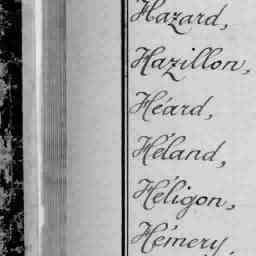 Hazard,
Hazillon,
Héard,
Héland,
Héligon,
Hémery,